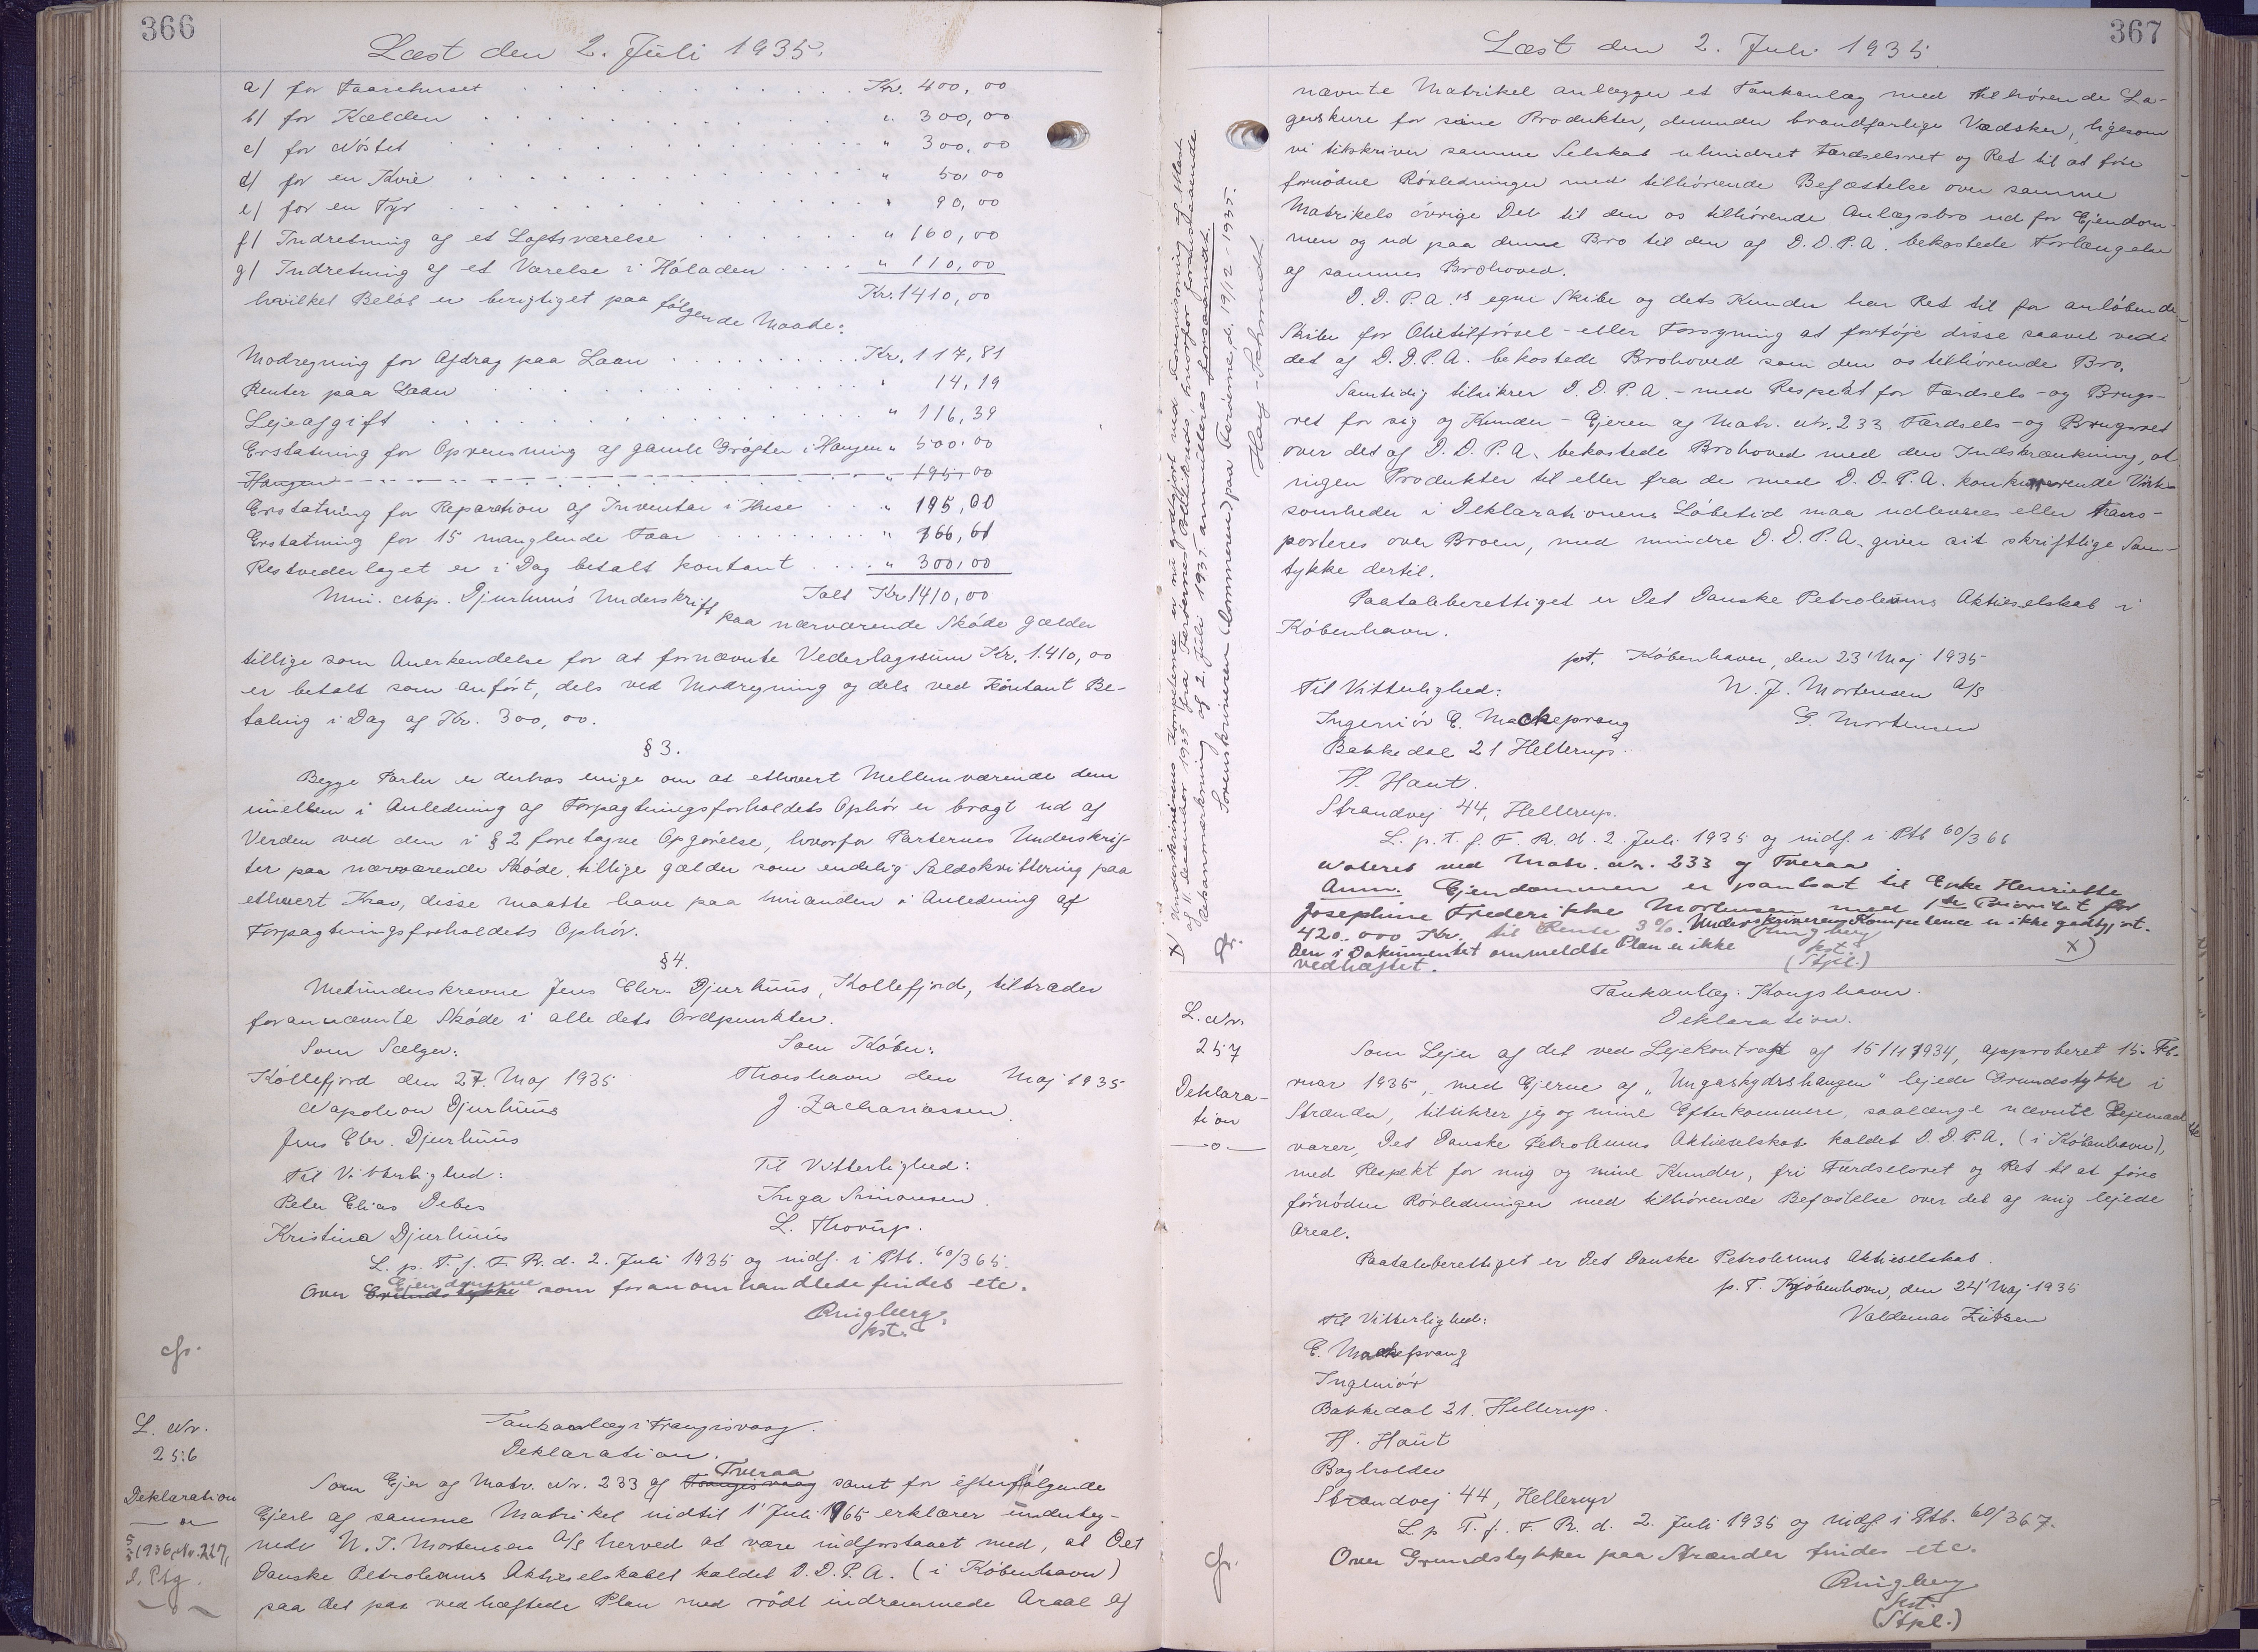 366
Læst den 2. Juli 1935.
a) for Faarehuset . . . Kr. 400,00
b) for Kælden . . . " 300,00
c) for Nöstet . . . " 300,00
d) for en Kvie . . . " 50,00
e) for en Tyr . . . " 90,00
f) Indretning af et Loftsværelse . . . " 160,00
g) Indretning af et Værelse i Höladen . . . " 110,00
hvilket Beløb er berigtiget paa følgende Maade: Kr. 1410,00
Modregning for Afdrag paa Laan . . . Kr. 117,81
Renter paa Laan . . . " 14,19
Lejeafgift . . . " 116,39
Erstatning for Oprensning af gamle Gröfter i Haugen " 500,00
Haugen - - - " 195,00
Erstatning for Reparation af Inventar i Huse . . " 195,00
Erstatning for 15 manglende Faar . . . " 166,61
Restvederlaget er i Dag betalt kontant . . . " 300,00
Min. Nap. Djurhuus' Underskrift Ialt Kr. 1410,00
paa nærværende Sköde gælder
tillige som Anerkendelse for at fornævnte Vederlagssum Kr. 1.410,00
er betalt som anført, dels ved Modregning og dels ved Kontant Be-
taling i Dag af Kr. 300,00.
§ 3.
Begge Parter er derhos enige om at ethvert Mellemværende dem
imellem i Anledning af Forpagtningsforholdets Ophör er bragt ud af
Verden ved den i § 2 foretagne Opgörelse, hvorfor Parternes Underskrif-
ter paa nærværende Sköde, tillige gælder som endelig Saldokvittering paa
ethvert Krav, disse maatte have paa hinanden i Anledning af
Forpagtningsforholdets Ophör.
§ 4.
Medunderskrevne Jens Chr. Djurhuus, Kollefjord, tiltræder
forannævnte Sköde i alle dets Ordpunkter.
Som Sælger: Som Köber:
Kollefjord den 27. Maj 1935 Thorshavn den Maj 1935
Napoleon Djurhuus J. Zachariassen.
Jens Chr. Djurhuus
Til Vitterlighed: Til Vitterlighed:
Peter Elias Debes Inga Simonsen
Kristina Djurhuus L. Thorup.
L. p. T. f. F. R. d. 2. Juli 1935 og indf. i Ptb. 60/365.
Over Grundstykke Ejendomme som foranomhandlede findes etc.
Ringberg.
kst.
L. Nr.
256
Deklaration
5/5 1936, Nr. 227,
Tankanlæg i Trangisvaag.
Deklaration.
Som Ejer af Matr. Nr. 233 af Trangisvaag Tveraa samt for efterfølgende
Ejere af samme Matrikel indtil 1' Juli 1965 erklærer underteg-
nede N. J. Mortensen A/S herved at være indforstaaet med, at Det
Danske Petroleums Aktieselskabet kaldet D.D.P.A. (i København)
paa det paa vedhæftede Plan med rödt indrammede Areal af
367
Læst den 2. Juli 1935.
nævnte Matrikel anlægger et Tankanlæg med tilhörende La-
gerskure for sine Produkter, derunder brandfarlige Vædsker, ligesom
vi tilskriver samme Selskab uhindret Færdselsret og Ret til at före
fornödne Rörledninger med tilhörende Befæstelse over samme
Matrikels övrige Del til den os tilhörende Anlægsbro ud for Ejendom-
men og ud paa denne Bro til den af D.D.P.A. bekostede Forlængelse
af sammes Brohoved.
D.D.P.A.'s egne Skibe og dets Kunder har Ret til for anløbende
Skibe for Olietilförsel- eller Forsyning at fortöje disse saavel ved
det af D.D.P.A. bekostede Brohoved som den os tilhörende Bro.
Samtidig tilsikrer D.D.P.A. - med Respekt for Færdsels- og Brugs-
ret for sig og Kunder - Ejeren af Matr. Nr. 233 Færdsels- og Brugsret
over det af D.D.P.A. bekostede Brohoved med den Indskrænkning, at
ingen Produkter til eller fra de med D.D.P.A. konkurrerende Virk-
somheder i Deklarationens Löbetid maa udleveres eller trans-
porteres over Broen, med mindre D.D.P.A. giver sit skriftlige Sam-
tykke dertil.
Paataleberettiget er Det Danske Petroleums Aktieselskab i
København.
pt. København, den 23' Maj 1935
Til Vitterlighed: N. J. Mortensen A/S
Ingeniör E. Mackeprang G. Mortensen
Bakkedal 21 Hellerup.
H. Haut.
Strandvej 44, Hellerup.
L. p. T. f. F. R. d. 2. Juli 1935 og indf. i Ptb 60/366
Noteret ved Matr. Nr. 233 af Tveraa
Anm. Ejendommen er pantsat til Enke Henriette
Josephine Frederikke Mortensen med 1ste Prioritet for
420.000 Kr. til Rente 3%. Underskriverens Kompetence er ikke godtgjort.
Den i Dokumentet ommeldte Plan er ikke
vedhæftet.
Ringberg
kst.
(Stpl.)
X)
X) Underskriverens Kompetence er nu godtgjort ved Fremvisning af Attest
af 11. december 1935 fra Færøernes Politikreds, hvorfor foranstaaende
Retsanmærkning af 2. Juli 1935 annulleres forsaavidt.
Sorenskriveren (Dommeren) paa Færøerne, d. 19/12-1935.
Høeg-Schmidt
L. Nr.
257
Deklara-
tion
Tankanlæg: Kongshavn.
Deklaration.
Som Lejer af det ved Lejekontrakt af 15/11 1934, approberet 15. Feb-
ruar 1935, med Ejerne af "Ungaskydshaugen" lejede Grundstykke i
Strænder, tilsikrer jeg og mine Efterkommere, saalænge nævnte Lejemaal
varer, Det Danske Petroleums Aktieselskab kaldet D.D.P.A. (i København),
med Respekt for mig og mine Kunder, fri Færdselsret og Ret til at före
fornödne Rörledninger med tilhörende Befæstelse over det af mig lejede
Areal.
Paataleberettiget er Det Danske Petroleums Aktieselskab.
p. T. Kjøbenhavn, den 24' Maj 1935
Til Vitterlighed: Valdemar Lützen
E. Mackeprang
Ingeniör
Bakkedal 21. Hellerup.
H. Haut
Bogholder
Strandvej 44, Hellerup
L. p. T. f. F. R. d. 2. Juli 1935 og indf. i Ptb. 60/367.
Over Grundstykker paa Strænder findes etc.
Ringberg
kst.
(Stpl.)